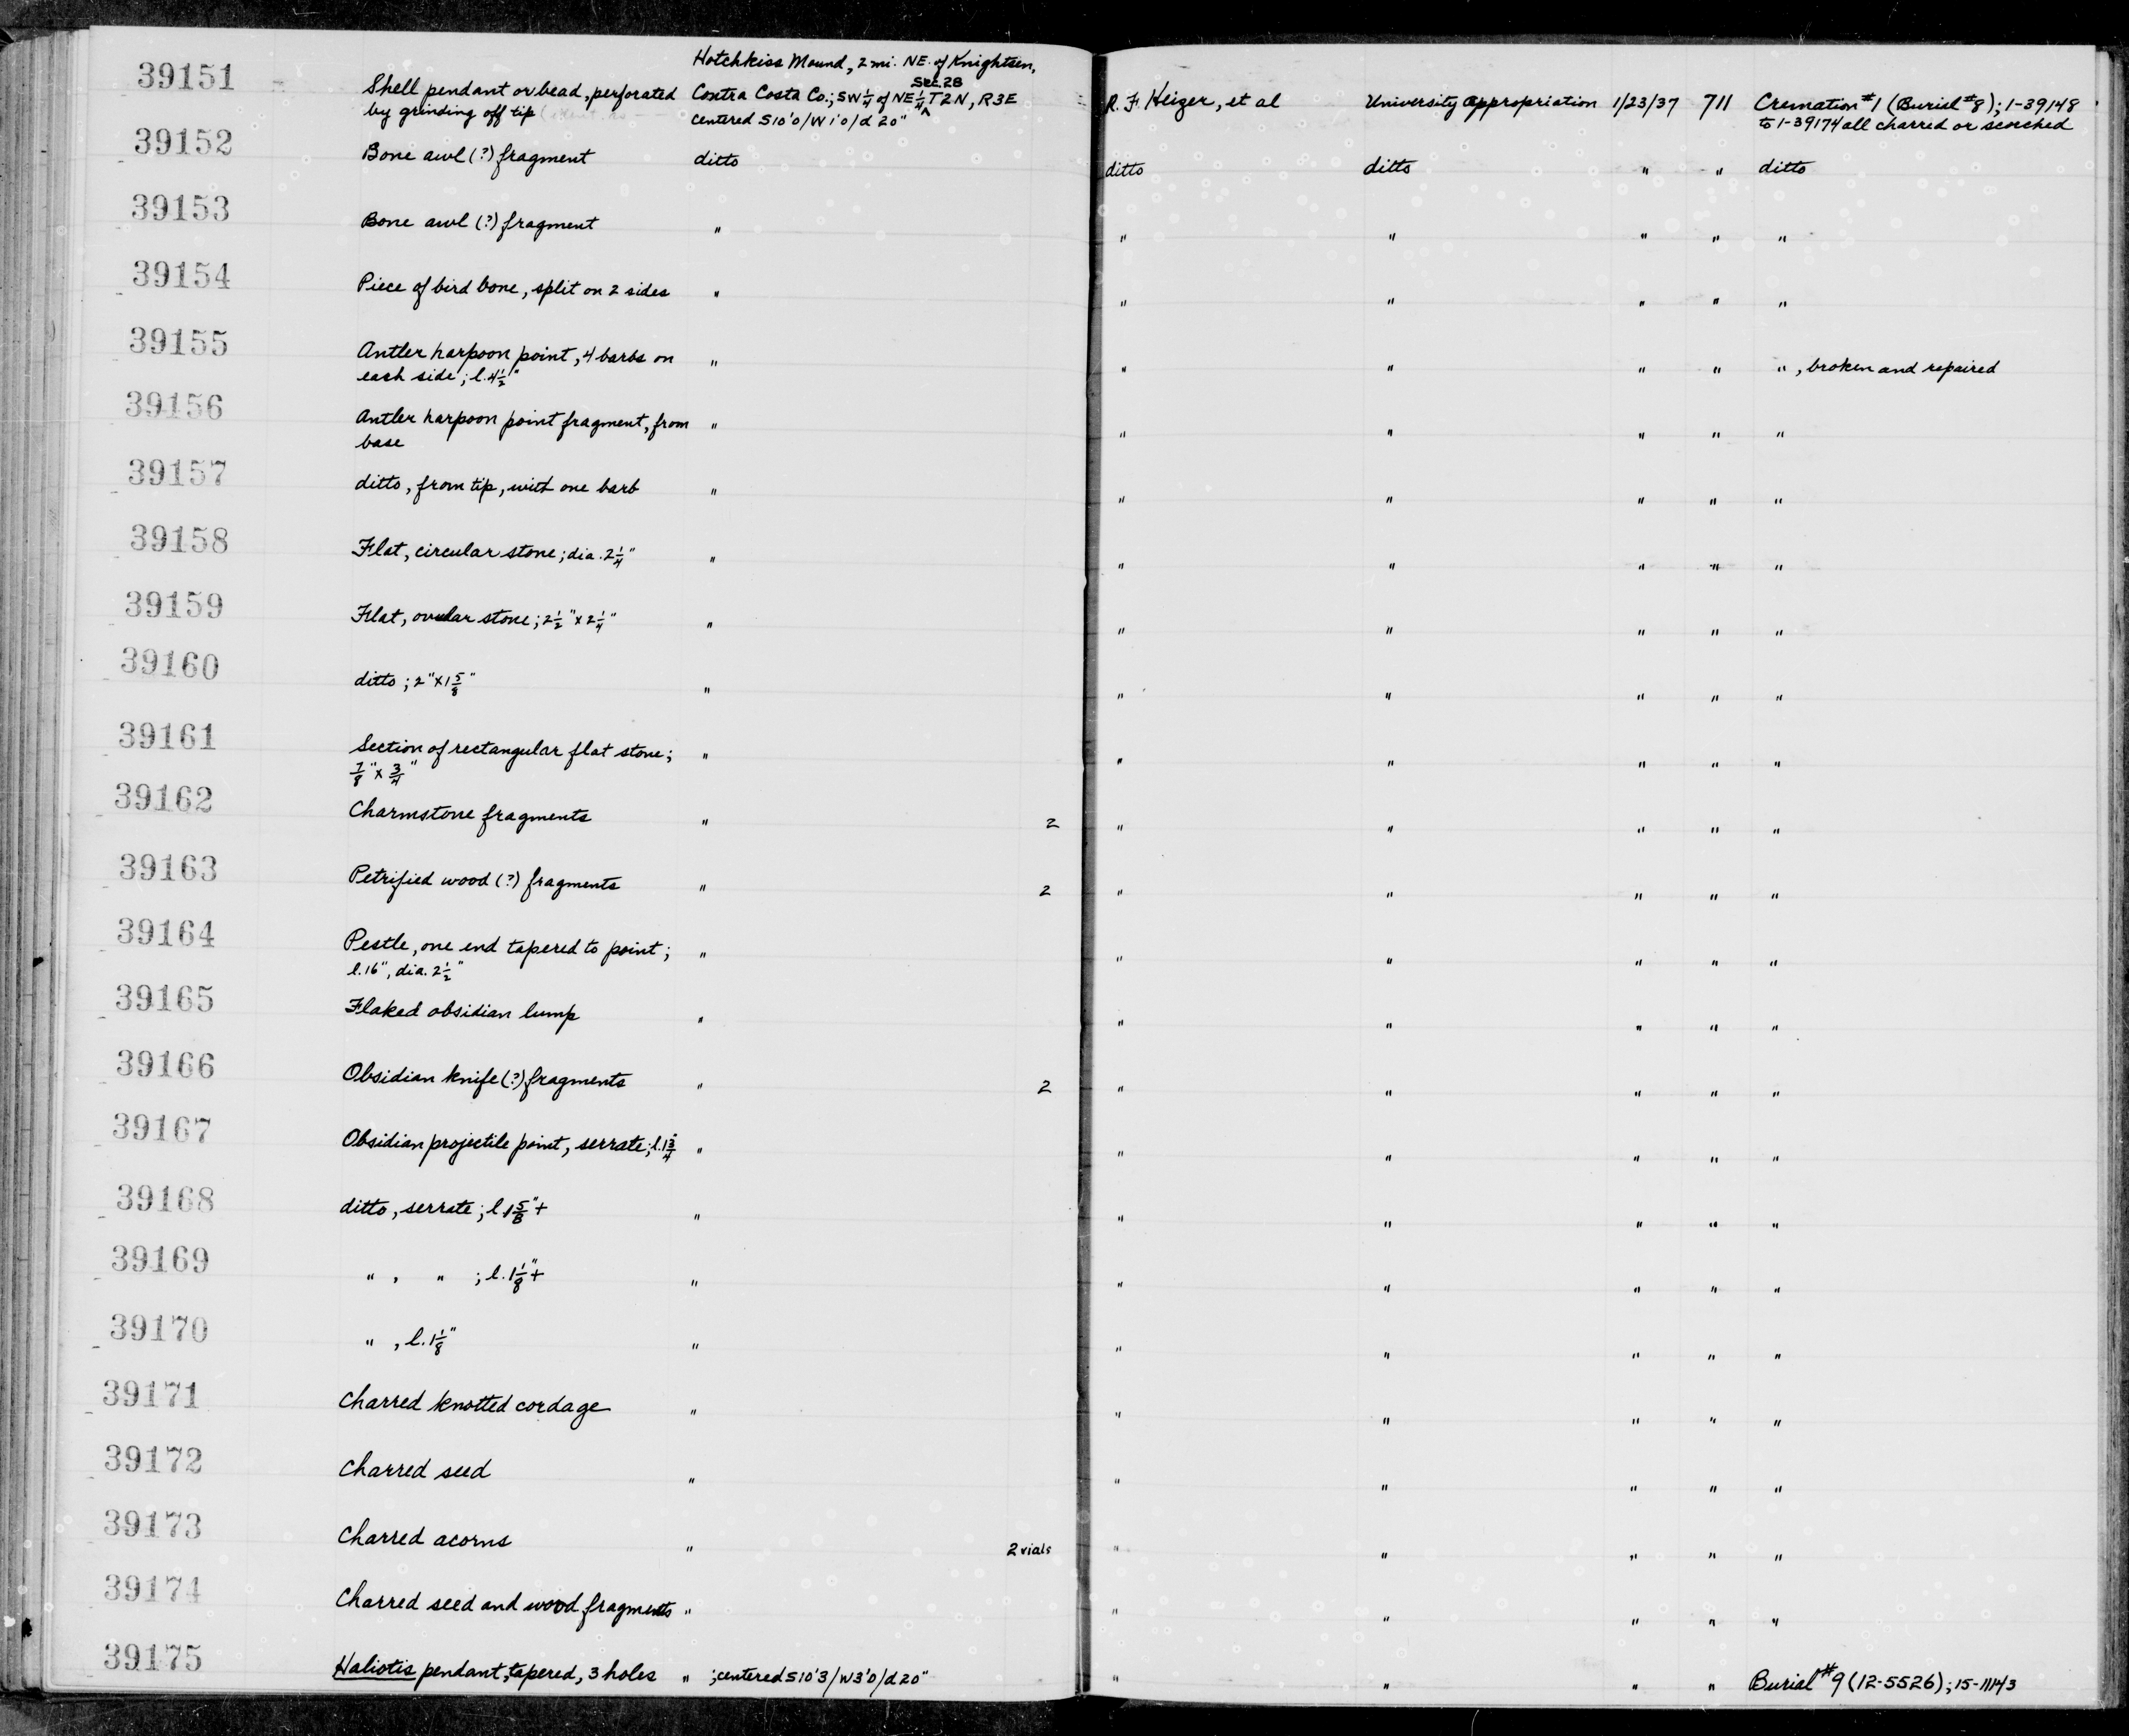 Hotchkiss Mound, 2 mi. NE. of Knightsen,
39151 Shell pendant or bead, perforated Contra Costa Co.; SW 1/4 of NE 1/4 ^ Sec. 28 T2N, R3E R. F. Heizer, et al University Appropriation 1/23/37 711 Cremation #1 (Burial #8); 1-39148
by grinding off tip centered S10'0/W1'0/d 20" to 1-39174 all charred or scorched
39152 Bone awl (?) fragment ditto ditto ditto " " ditto
39153 Bone awl (?) fragment " " " " " "
39154 Piece of bird bone, split on 2 sides " " " " " "
39155 Antler harpoon point, 4 barbs on " " " " " " , broken and repaired
each side; l. 4 1/2"
39156 Antler harpoon point fragment, from " " " " " "
base
39157 ditto, from tip, with one barb " " " " " "
39158 Flat, circular stone; dia. 2 1/4" " " " " " "
39159 Flat, ovular stone; 2 1/2" x 2 1/4" " " " " " "
39160 ditto; 2" x 1 5/8" " " " " " "
39161 Section of rectangular flat stone; " " " " " "
7/8" x 3/4"
39162 Charmstone fragments " 2 " " " " "
39163 Petrified wood (?) fragments " 2 " " " " "
39164 Pestle, one end tapered to point; " " " " " "
l. 16", dia. 2 1/2"
39165 Flaked obsidian lump " " " " " "
39166 Obsidian knife (?) fragments " 2 " " " " "
39167 Obsidian projectile point, serrate; l. 1 3/4" " " " " " "
39168 ditto, serrate; l. 1 5/8"+ " " " " " "
39169 " , " ; l. 1 1/8"+ " " " " " "
39170 " , l. 1 1/8" " " " " " "
39171 Charred knotted cordage " " " " " "
39172 Charred seed " " " " " "
39173 Charred acorns " 2 vials " " " " "
39174 Charred seed and wood fragments " " " " " "
39175 Haliotis pendant, tapered, 3 holes " ; centered S10'3/W3'0/d 20" " " " " Burial #9 (12-5526); 15-11143